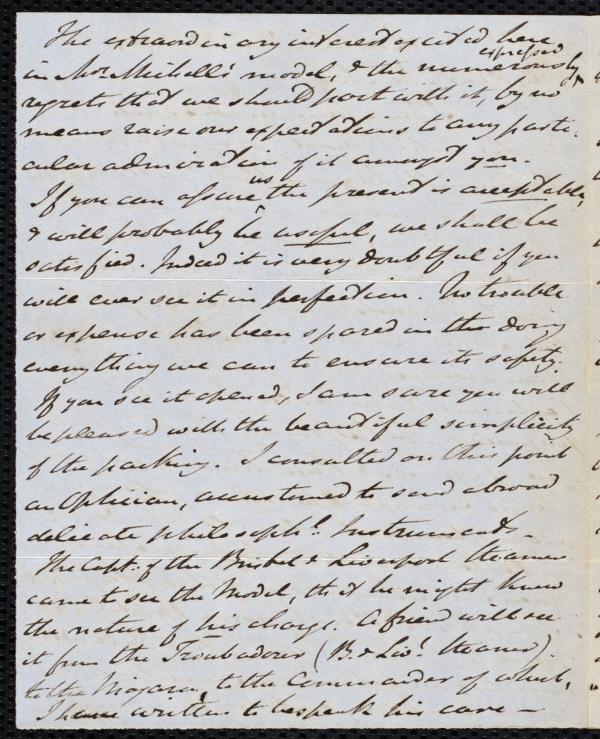 The extraordinary interest excited here
in Mr. Michell's model, & the numerously expressed
regrets that we should part with it, by no
means raise our expectations to any parti-
cular admiration of it amongst you.
If you can assure us the present is acceptable,
& will probably be useful, we shall be
satisfied. Indeed it is very doubtful if you
will ever see it in perfection. No trouble
or expense has been spared in the doing
everything we can to ensure its safety.
If you see it opened, I am sure you will
be pleased with the beautiful simplicity
of the packing. I consulted on this point
an Optician, accustomed to send abroad
delicate philosoph.l Instruments.
The Capt. of the Bristol & Liverpool steamer
came to see the Model, that he might know
the nature of his charge. A friend will see
it from the Troubadour (B. & Liv.l steamer).
to the Niagara, to the Commander of which,
I have written to bespeak his care —